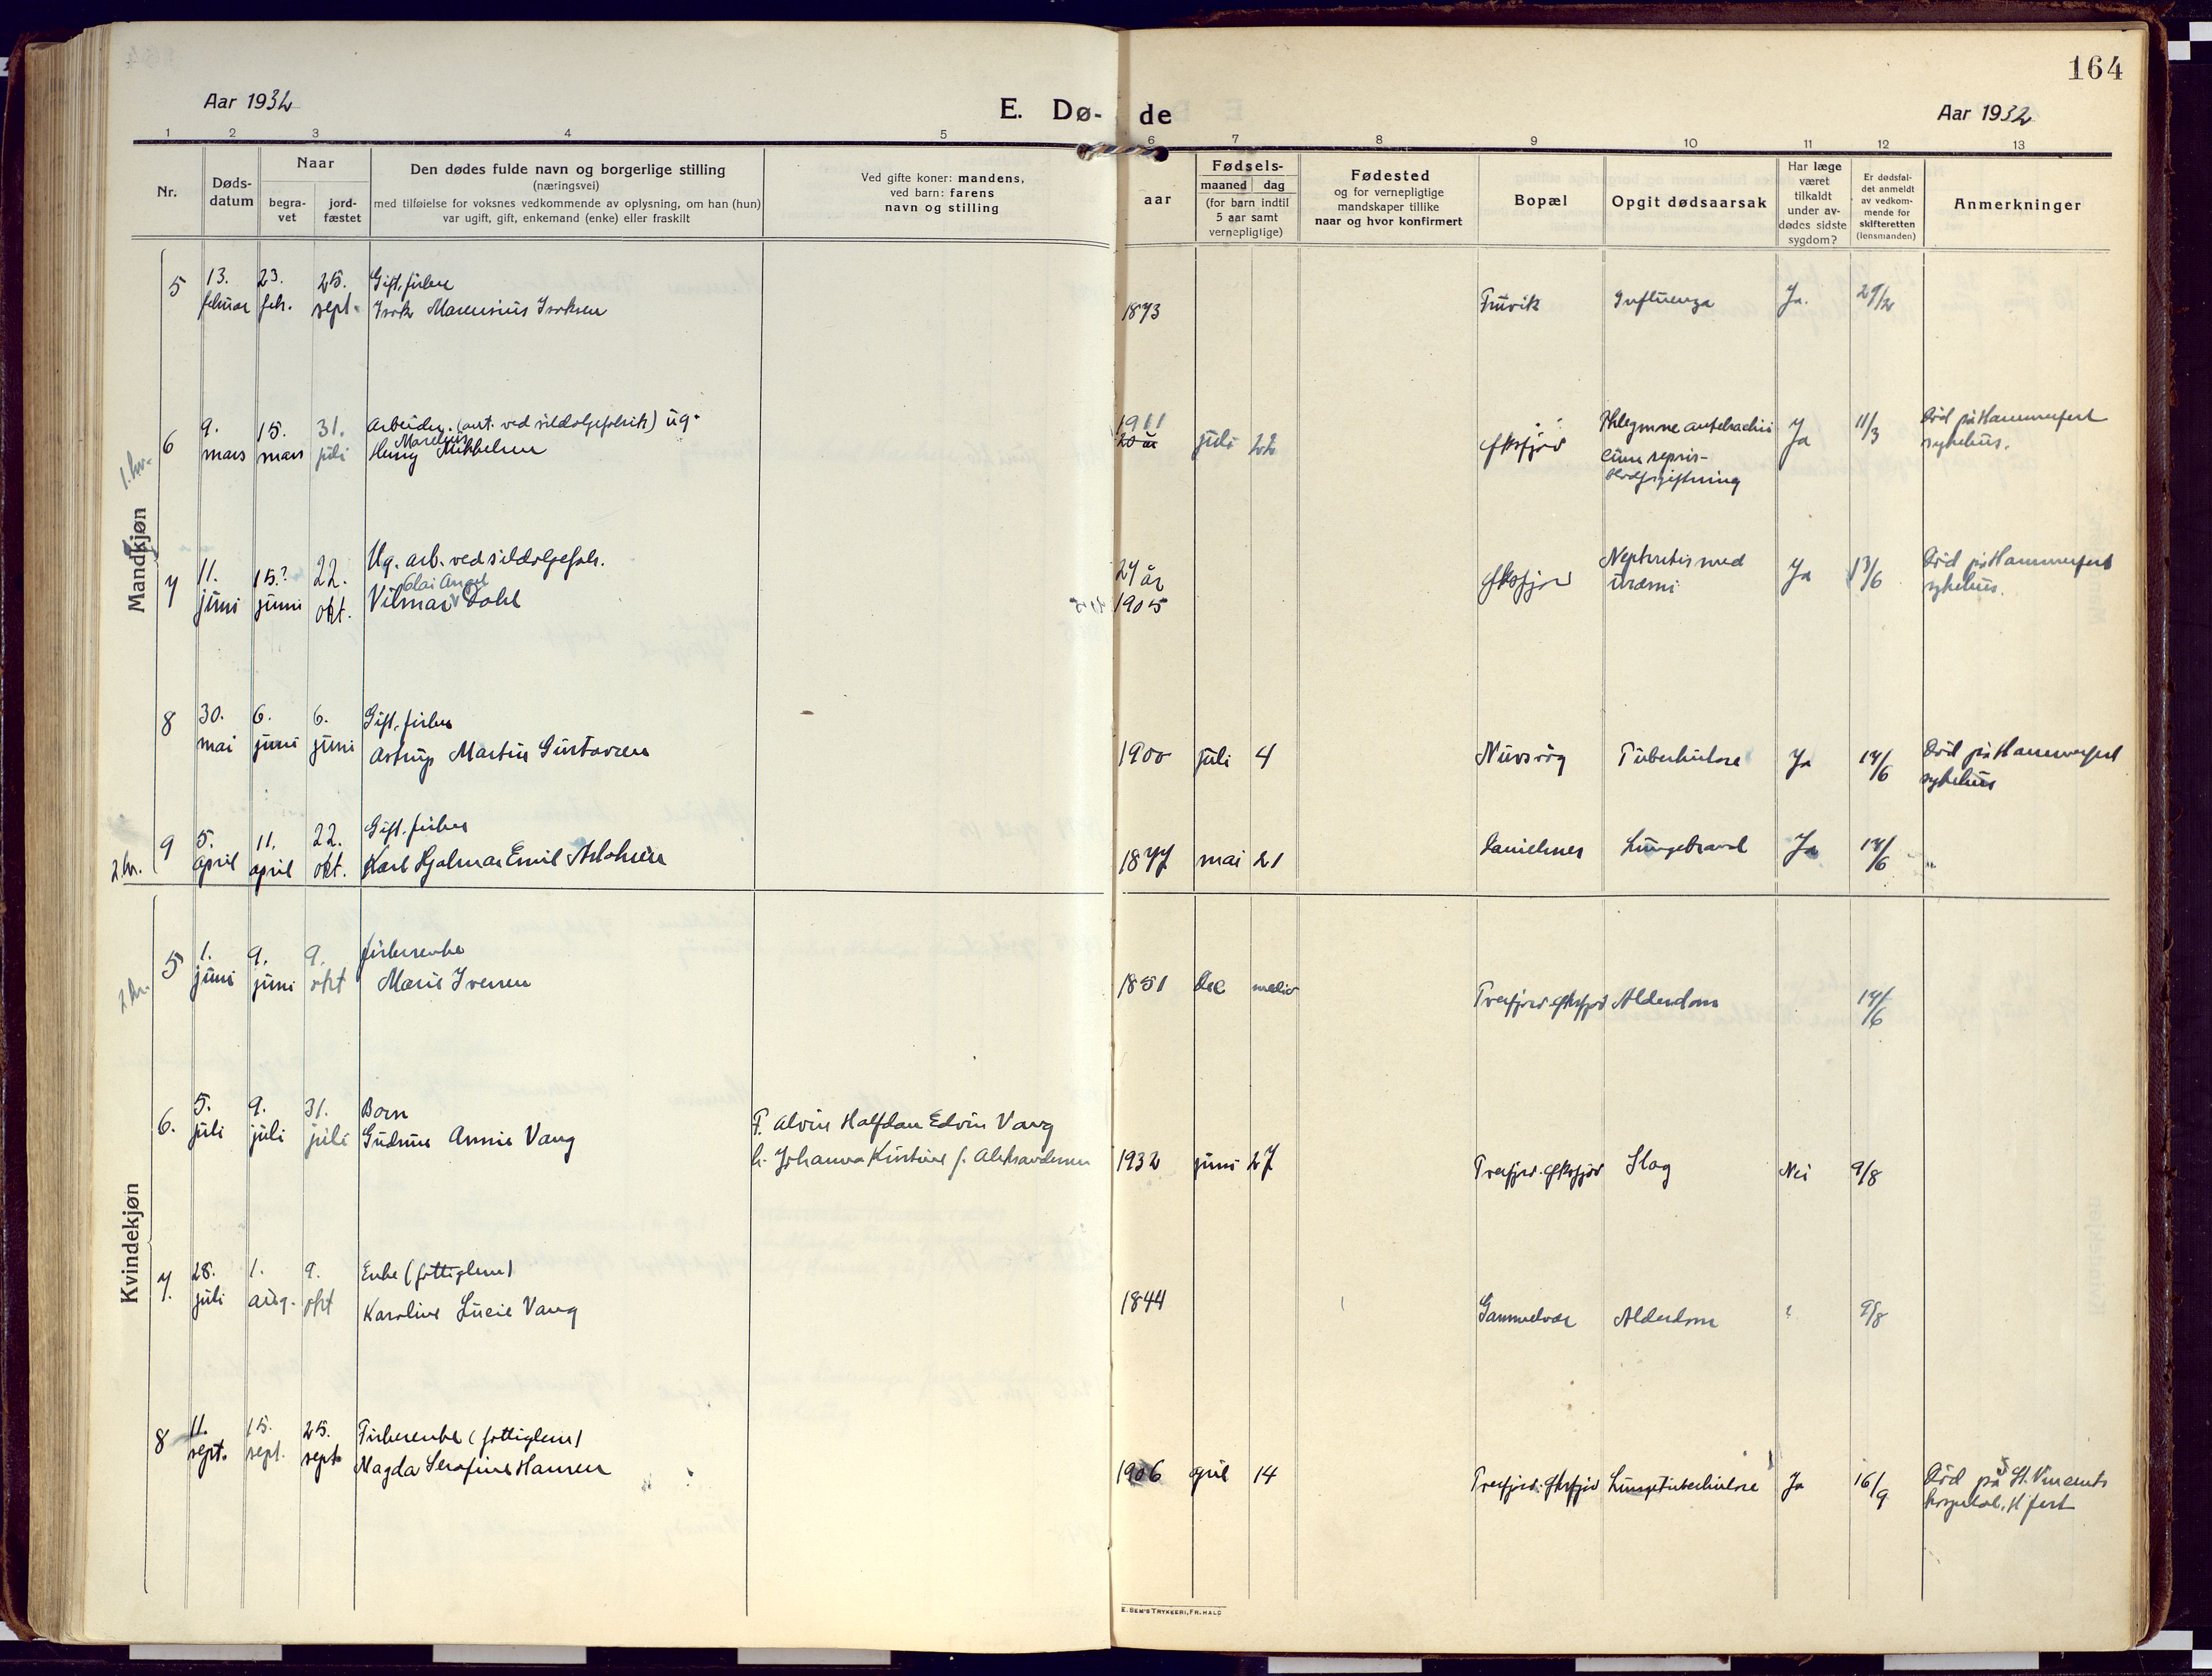 164
Aar 1932
E. Dø-
de
Aar 1932
1 2 3 4 5 6 7 8 9 10 11 12 13
Nr.
Døds-
datum
Naar
begra-
vet
jord-
fæstet
Den dødes fulde navn og borgerlige stilling
(næringsvei)
med tilføielse for voksnes vedkommende av oplysning, om han (hun)
var ugift, gift, enkemand (enke) eller fraskilt
Ved gifte koner: mandens,
ved barn: farens
navn og stilling
Fødsels-
aar
maaned dag
(for barn indtil
5 aar samt
vernepligtige)
Fødested
og for vernepligtige
mandskaper tillike
naar og hvor konfirmert
Bopæl
Opgit dødsaarsak
Har læge
været
tilkaldt
under av-
dødes sidste
sygdom?
Er dødsfal-
det anmeldt
av vedkom-
mende for
skifteretten
(lensmanden)
Anmerkninger
Mandkjøn
5 13. februar 23. feb. 25. sept. Gift, fisker
Isak Marensius Isaksen 1873 Fuvik Influenza Ja. 29/2
1. kv.
6 9. mars 15. mars 31. juli Arbeider. (ant. ved sildoljefabrik) ug.
Henry Marelius Mikkelsen 1911 20 år juli 22 Øksfjord Phlegmone antebrachii
cum sepsis-
Blodforgiftning Ja Ja 11/3 Død på Hammerfest
sykehus.
7 11. juni 15.? juni 22. okt. Ug. arb. ved sildoljefabr.
Vilmar Olai Angel Dahl 27 år
1905 Øksfjord Nephritis med
uræmi Ja 13/6 Død på Hammerfest
sykehus.
8 30. mai 6. juni 6. juni Gift, fisker
Astrup Martin Gustavsen 1900 juli 4 Nuvsvåg Tuberkulose Ja 14/6 Død på Hammerfest
sykehus
2. kv.
9 5. april 11. april 22. okt. Gift, fisker
Karl Hjalmar Emil Aslaksen 1877 mai 21 Danielsnes Lungebrand Ja 14/6 "
Kvindekjøn
2. kv.
5 1. juni 9. juni 9. okt Fiskerenke
Marie Iversen 1851 Des medio Tverfjord Øksfjord Alderdom 14/6
6. 5. juli 9. juli 31. juli Barn
Gudrun Annie Vang F. Alvin Halfdan Edvin Vang
h. Johanna Kristine f. Aleksandersen 1932 juni 27 Tverfjord. Øksfjord Slag Nei 9/8
7. 28. juli 1. aug. 9. okt Enke (fattiglem)
Karoline Lucie Vang 1844 Gammelvær Alderdom 9/8
8 11. sept. 15. sept. 25. sept. Fiskerenke (fattiglem)
Magda Serafine Hansen 1906 april 14 Tverfjord. Øksfjord Lungetuberkulose Ja 16/9 Død på St. Vincents
hospital, H.fest
E. SEM'S TRYKKERI, FR.HALD